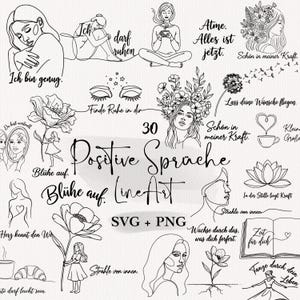 Ich bin genug.
Ich
darf
ruhen
Atme.
Alles ist
jetzt.
Schön in meiner Kraft.
Finde Ruhe in dir
Lass deine Wünsche fliegen.
30
Positive Sprache
LineArt
SVG + PNG
Schön in
meiner Kraft.
Blühe auf.
Blühe auf.
In der Stille liegt Kraft
Strahle von innen
Strahle von innen
Wachse durch das,
was dich fordert.
Zeit
für dich
Tanze durch das
Leben